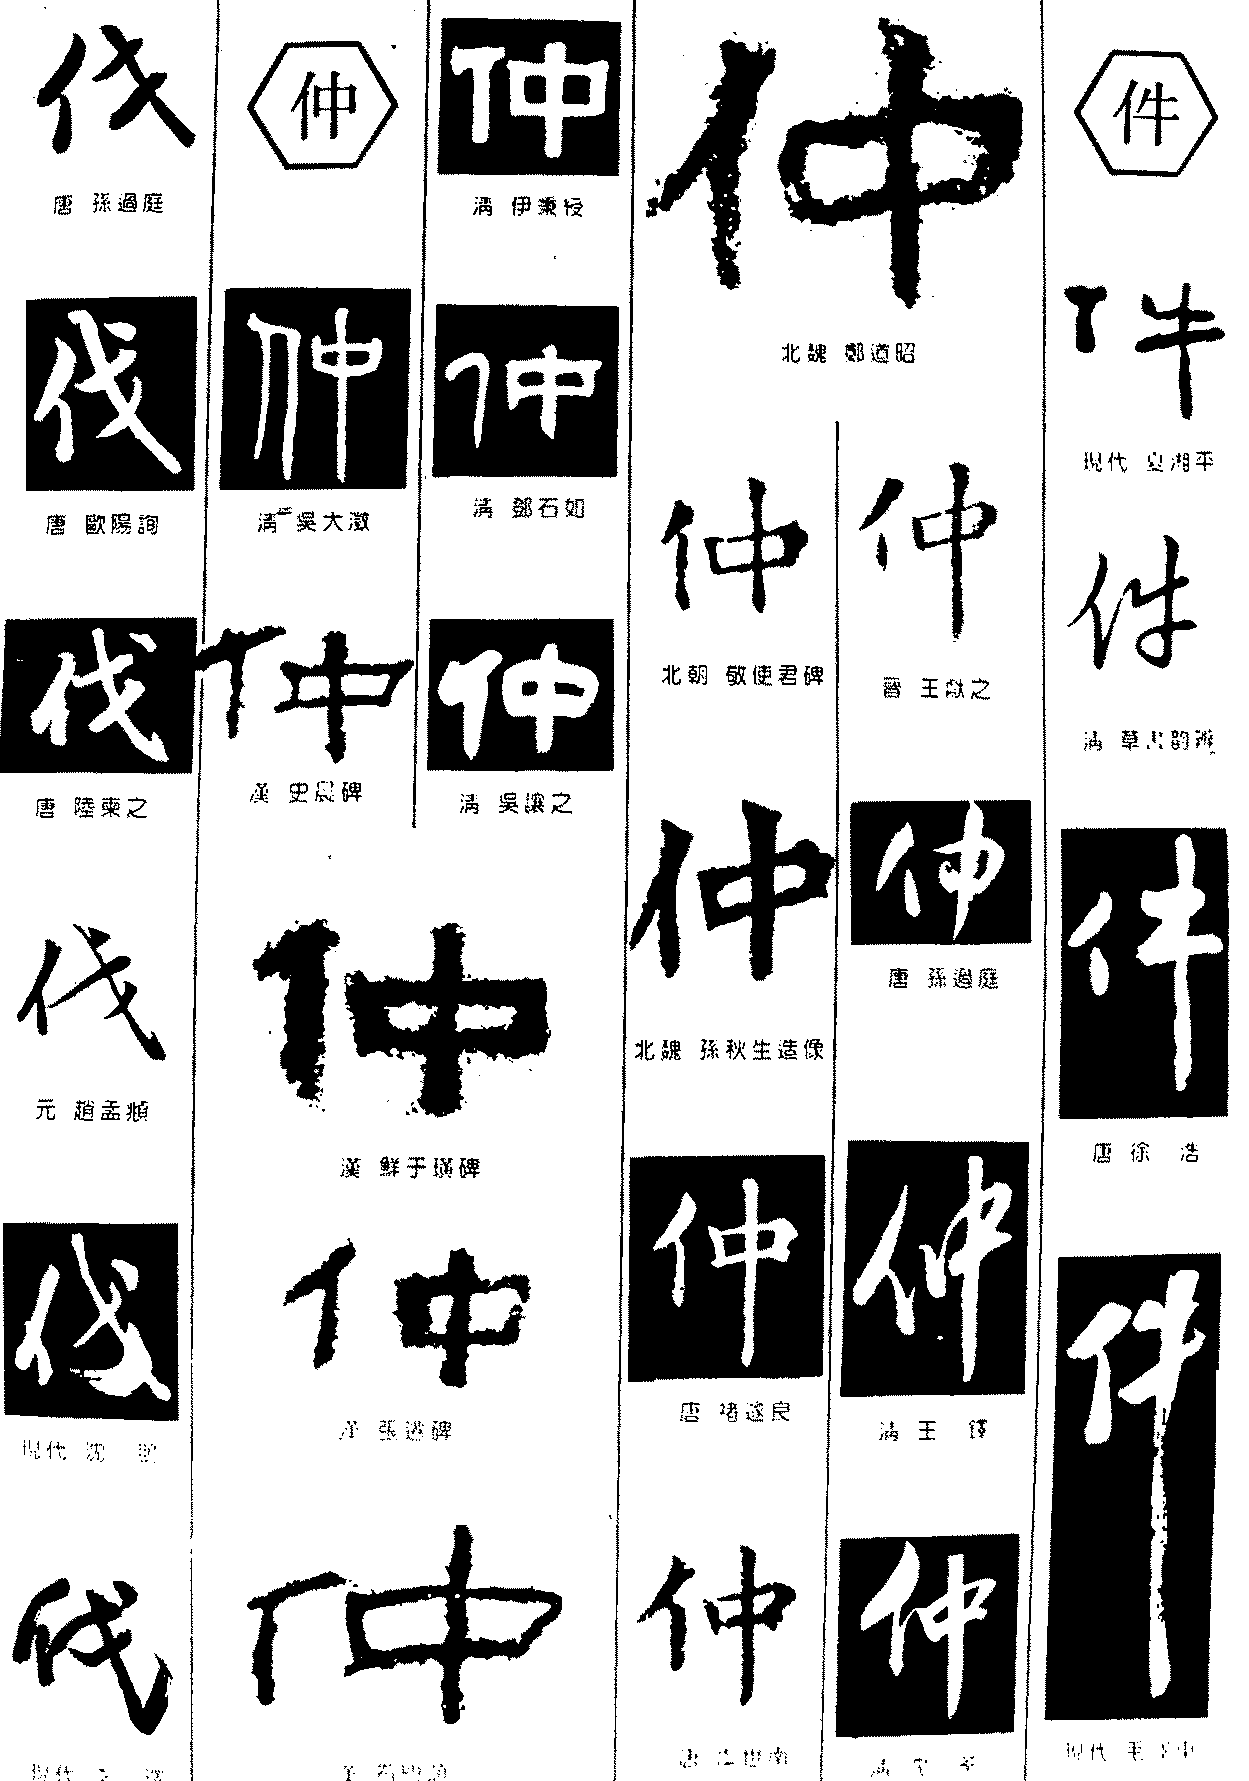 伐
唐 孫過庭
伐
唐 歐陽詢
伐
唐 陸柬之
伐
元 趙孟頫
伐
現代 沈
伐
現代
仲
仲
清 吳大澂
仲
漢 史晨碑
仲
清 伊秉綬
仲
清 鄧石如
仲
清 吳讓之
仲
漢 鮮于璜碑
仲
漢 張遷碑
仲
仲
北魏 鄭道昭
仲
北朝 敬使君碑
仲
北魏 孫秋生造像
仲
唐 褚遂良
仲
唐 虞世南
仲
晉 王獻之
仲
唐 孫過庭
仲
清 王 鐸
仲
清
件
件
現代 夏湘平
件
清 草書韵辨
件
唐 徐 浩
件
現代 毛